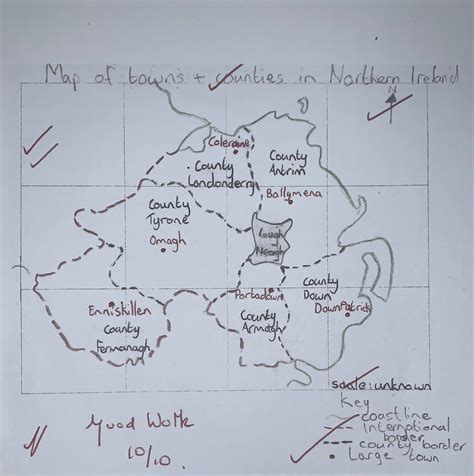 Map of towns + counties in Northern Ireland
N
Coleraine
County
Londonderry
County
Antrim
Ballymena
County
Tyrone
Omagh
Lough
Neagh
Enniskillen
County
Fermanagh
Portadown
County
Armagh
County
Down
DownPatrick
scale: unknown
Key
coastline
International
border
county border
Large town
Good Work
10/10.